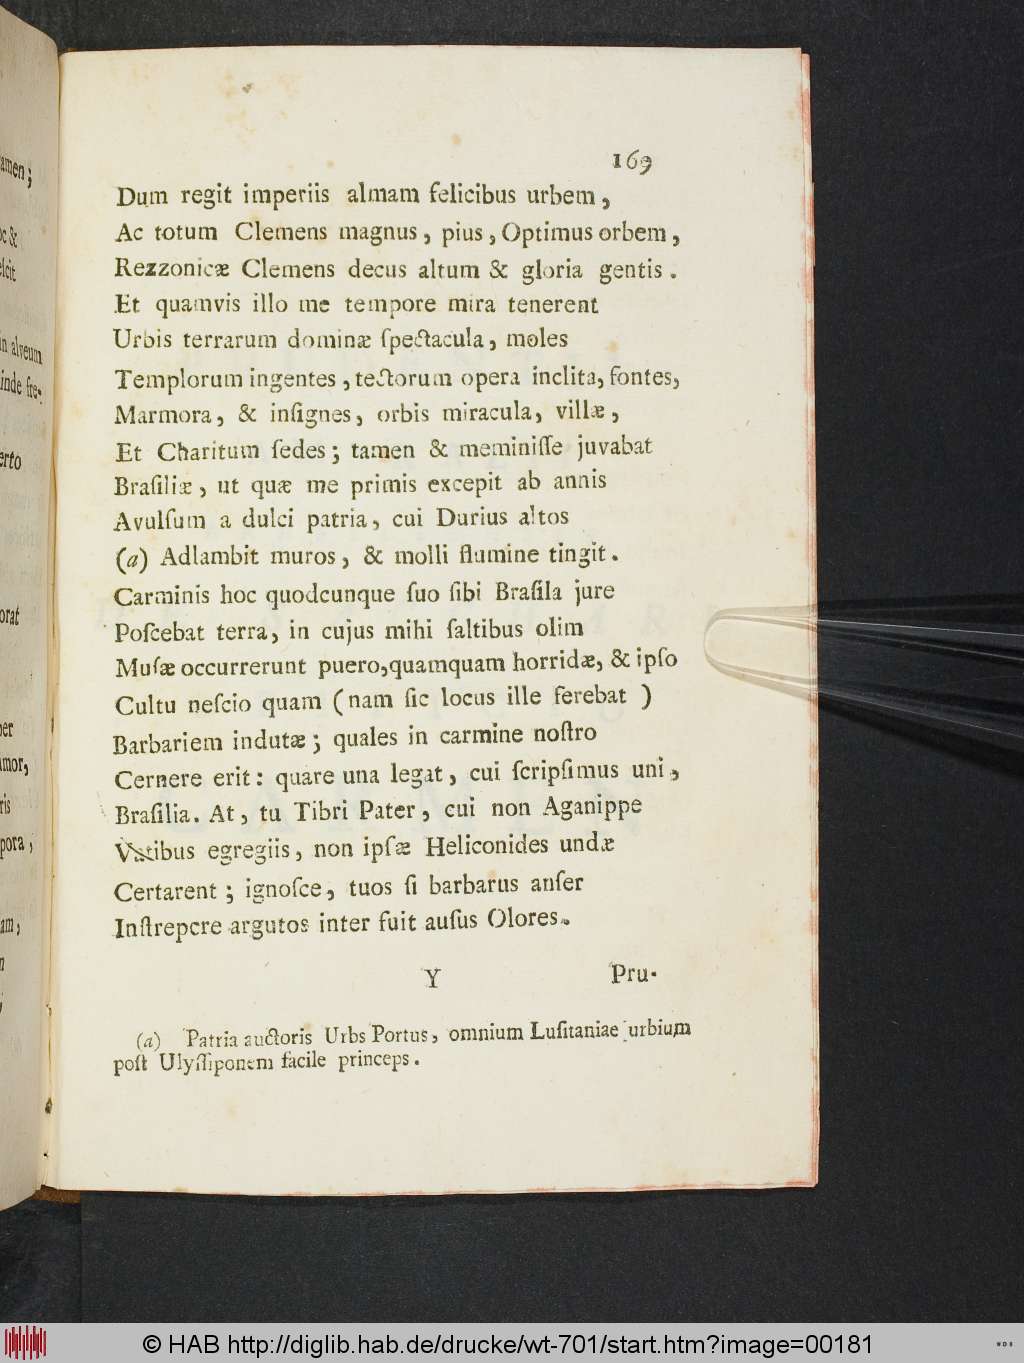 amen;
oc &
elcit
in alveum
inde fre-
erto
orat
per
amor,
ris
pora,
am,
169
Dum regit imperiis almam felicibus urbem,
Ac totum Clemens magnus, pius, Optimus orbem,
Rezzonicæ Clemens decus altum & gloria gentis.
Et quamvis illo me tempore mira tenerent
Urbis terrarum dominæ ſpectacula, moles
Templorum ingentes, tectorum opera inclita, fontes,
Marmora, & inſignes, orbis miracula, villæ,
Et Charitum ſedes; tamen & meminiſſe juvabat
Braſiliæ, ut quæ me primis excepit ab annis
Avulſum a dulci patria, cui Durius altos
(a) Adlambit muros, & molli flumine tingit.
Carminis hoc quodcunque ſuo ſibi Braſila jure
Poſcebat terra, in cujus mihi ſaltibus olim
Muſæ occurrerunt puero, quamquam horridæ, & ipſo
Cultu neſcio quam (nam ſic locus ille ferebat)
Barbariem indutæ; quales in carmine noſtro
Cernere erit: quare una legat, cui ſcripſimus uni,
Braſilia. At, tu Tibri Pater, cui non Aganippe
Vatibus egregiis, non ipſæ Heliconides undæ
Certarent; ignoſce, tuos ſi barbarus anſer
Inſtrepere argutos inter fuit auſus Olores.
Y Pru-
(a) Patria auctoris Urbs Portus, omnium Luſitaniae urbium
poſt Ulyſſiponem facile princeps.
© HAB http://diglib.hab.de/drucke/wt-701/start.htm?image=00181